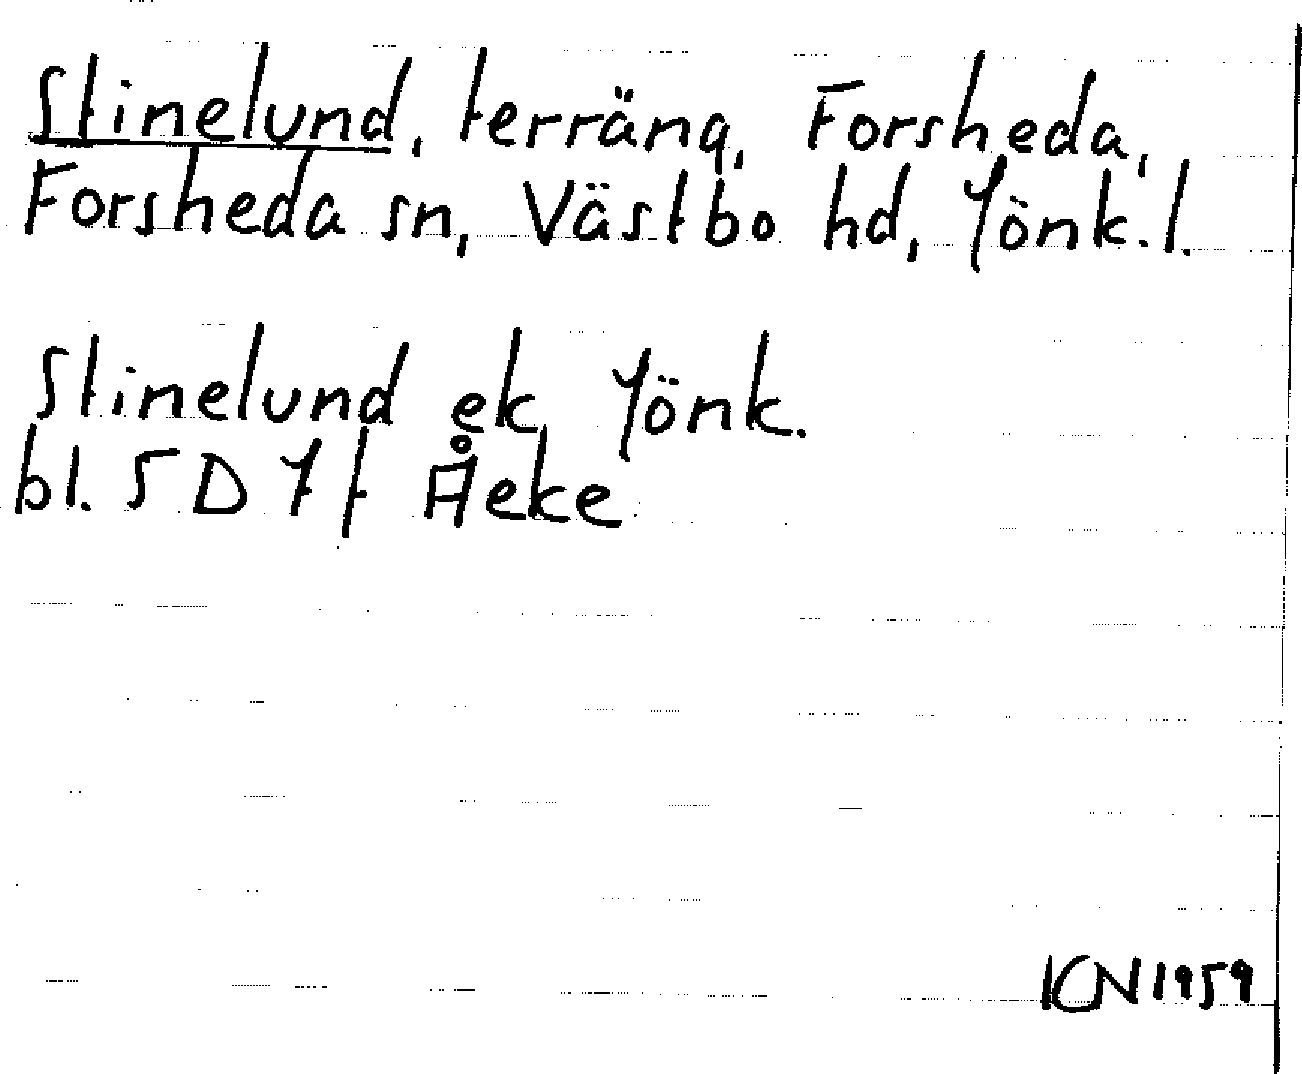 Stinelund, terräng, Forsheda,
Forsheda sn, Västbo hd, Jönk. l.
Stinelund ek Jönk.
bl. 5 D 7 f Åeke
ICN 1959